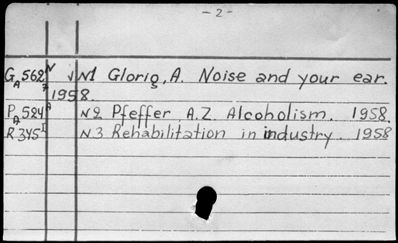 - 2 -
GA562N7 √ N1 Glorig, A. Noise and your ear.
1958.
PA584A N2 Pfeffer, A.Z. Alcoholism. 1958.
R345I N3 Rehabilitation in industry. 1958